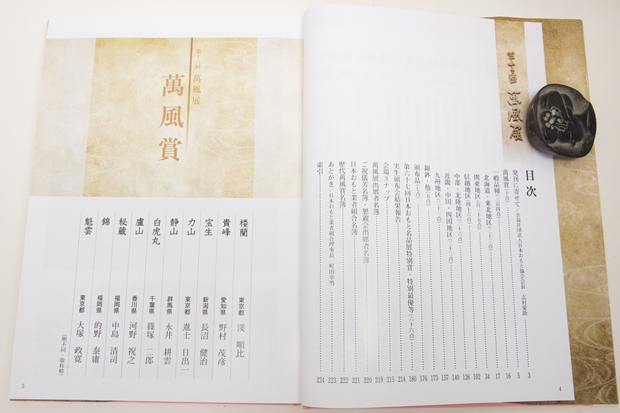 目次
発刊に寄せて
萬風賞
一般品種
北海道・東北地区
関東地区
信越地区
中部・北陸地区
近畿・中国・四国地区
九州地区
銘鉢・他
頒布品
第六十七回日本おもと名品展特別賞・特別最優等
実生頒布会結果報告
会場スナップ
萬風展出展者名簿
ご祝儀芳名簿・懇親会出席者名簿
日本おもと業者組合名簿
歴代萬風賞名簿
あとがき
索引
3
5
16
17
34
102
126
140
149
157
176
180
214
215
219
220
221
222
223
224
4
萬風展
萬風賞
楼蘭 東京都 渓 順比
貴峰 愛知県 野村 茂彦
宝生 新潟県 長沼 健治
力山 東京都 進士 日出一
静山 群馬県 永井 耕雲
白虎丸 千葉県 篠塚 二郎
廬山 香川県 河野 祝之
秘蔵 福岡県 中島 清司
錦 福岡県 的野 泰庸
魁雲 東京都 大塚 政寛
(順不同・敬称略)
5